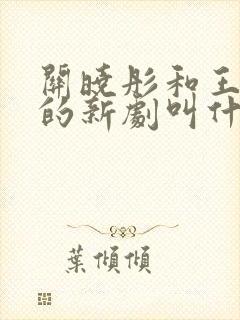 關曉彤和王
的新劇叫什
葉傾傾